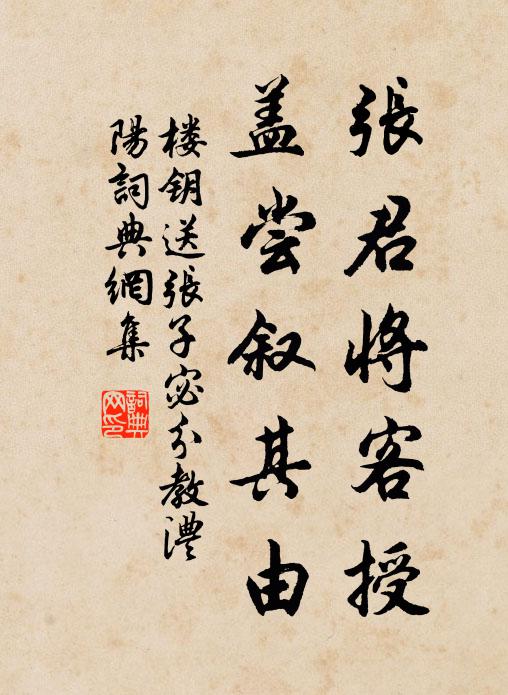 張君將客授
盖尝叙其由
楼钥送張子宓分教澧
陽詞典網集
詞典网印